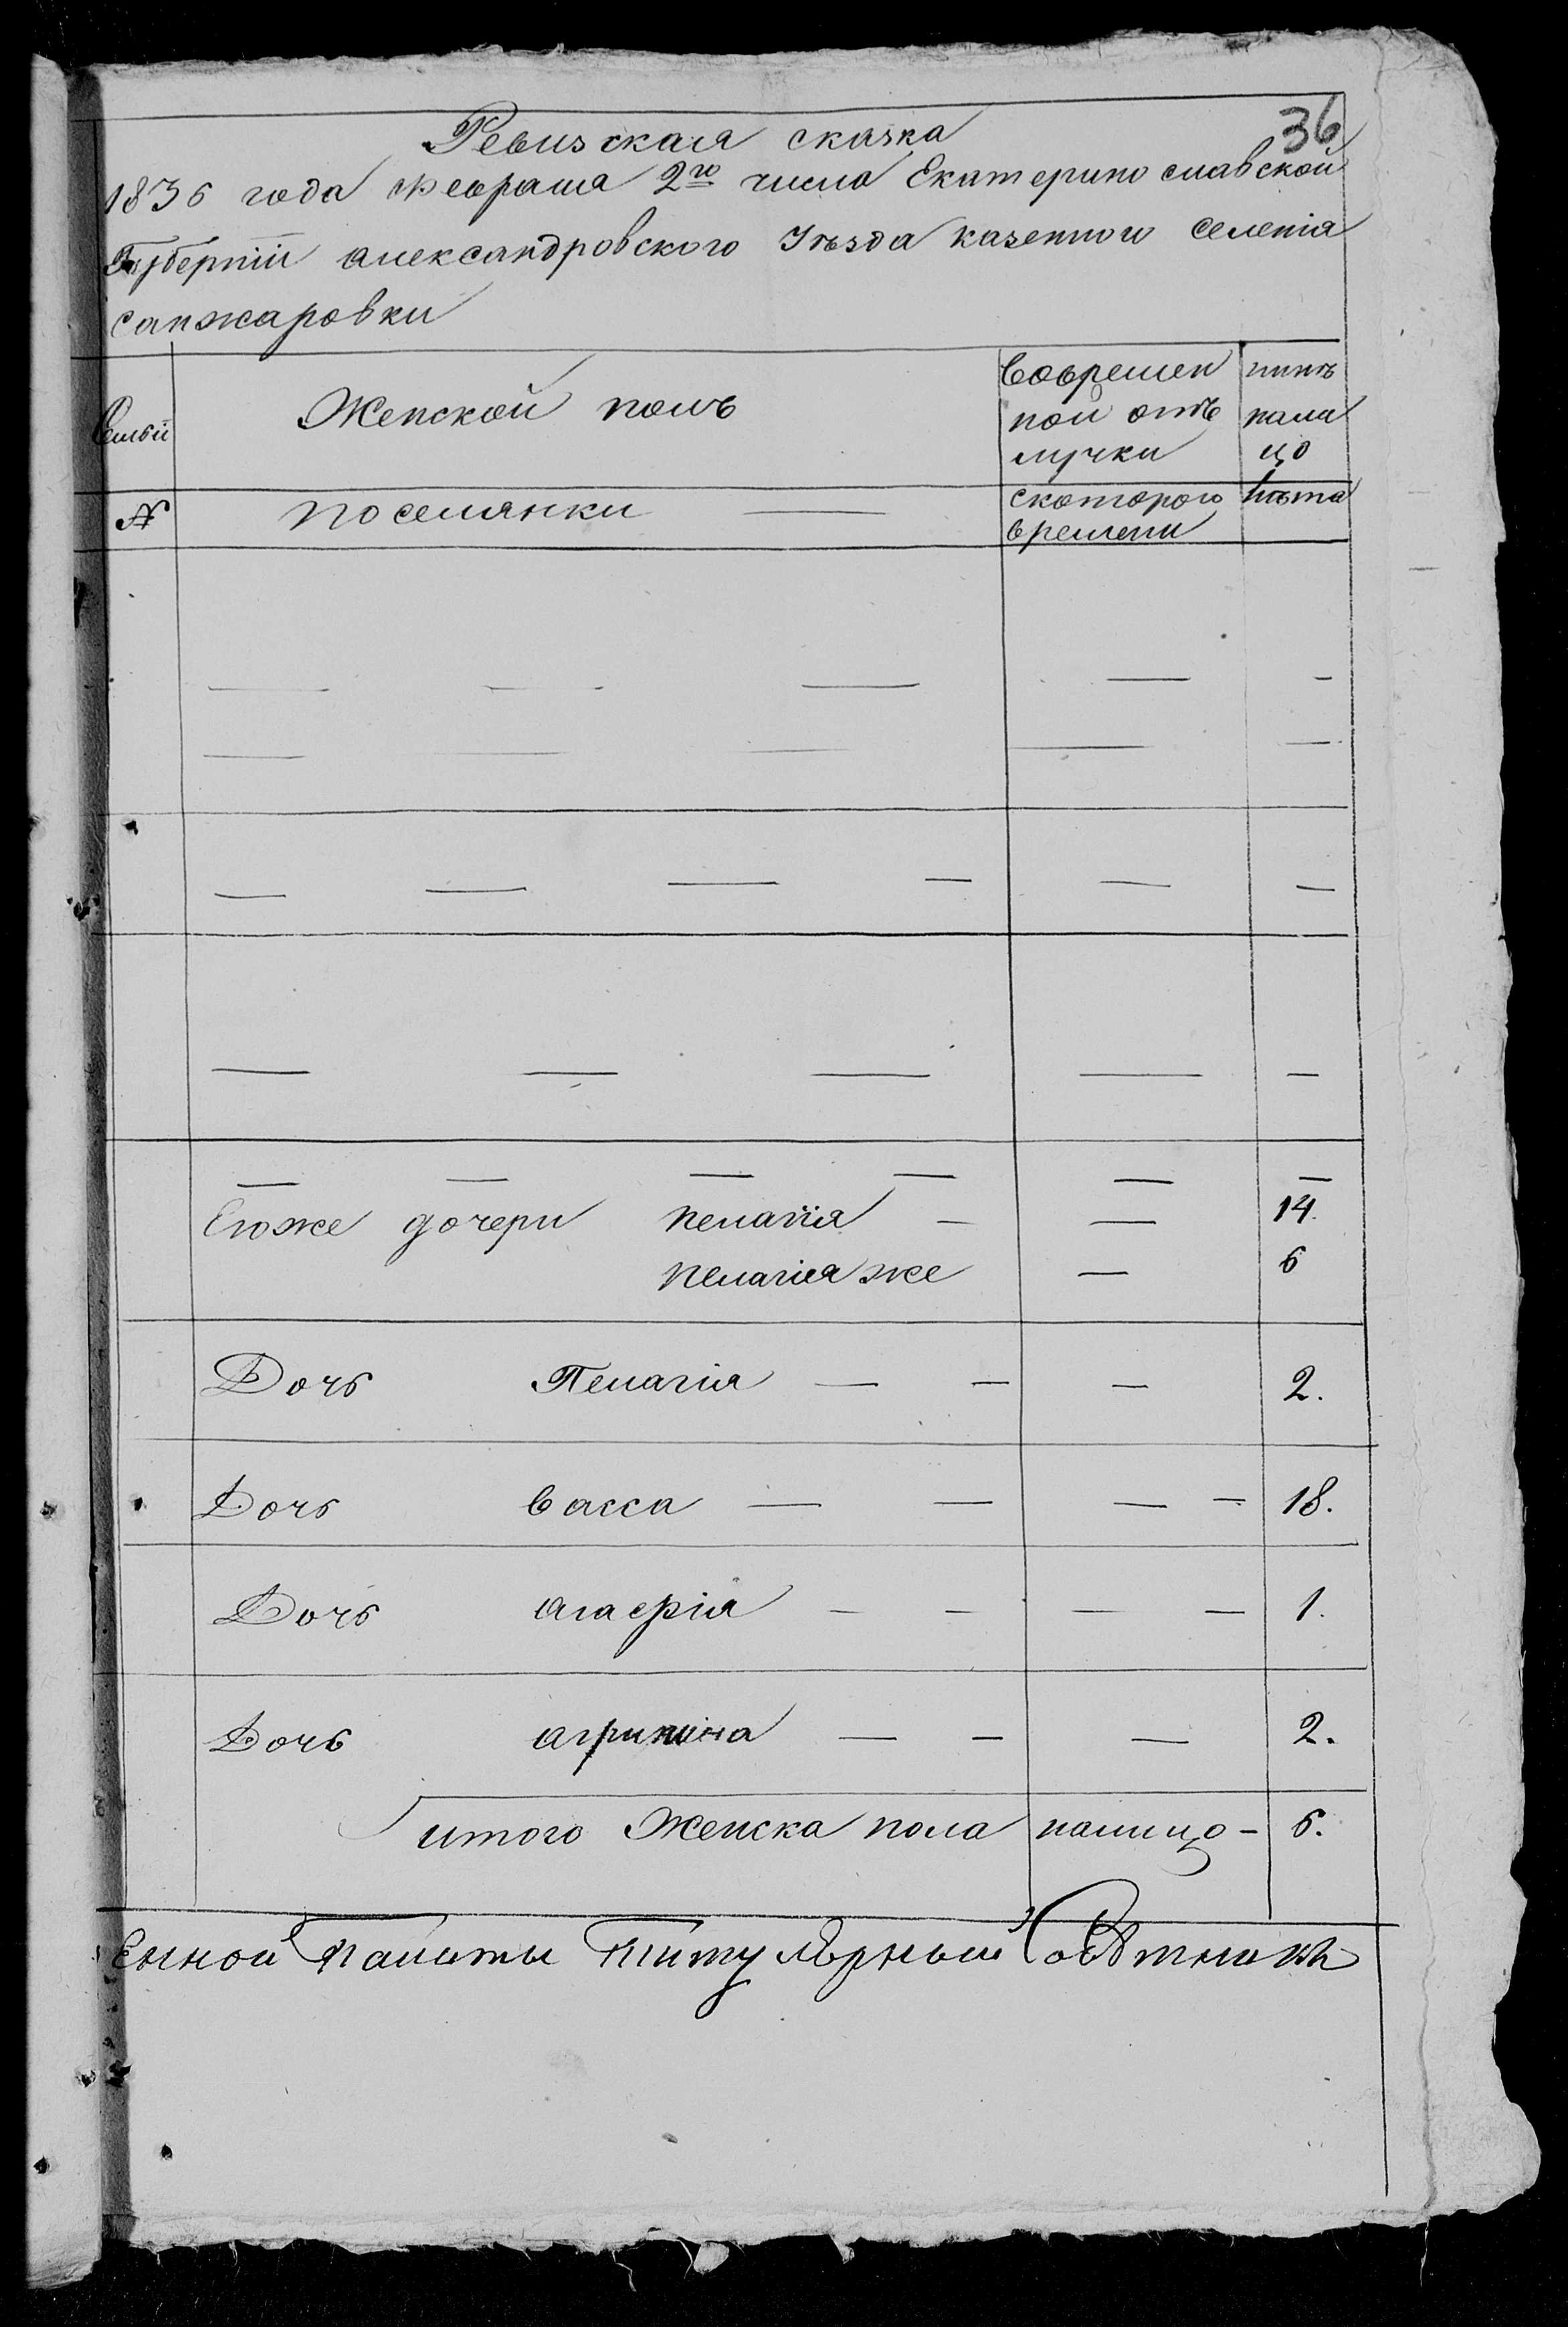 36
Ревизская сказка
1836 года Февраля 2го числа Екатерино славской
Губернiи александровского Уъзда казенного Селенiя
санжаровки
Семьи
Женской полъ
Вовремен
ной отъ
лучки
нынъ
нали
цо
№
поселянки —
скоторого
времени
Лъта
— — — — —
— — — — —
— — — — — —
— — — — —
— — — — — —
Егоже дочери пелагiя — — 14.
пелагiя же — 6
Дочь Пелагiя — — — 2.
Дочь Васса — — — — 18.
Дочь агафiя — — — — 1.
Дочь агрипина — — — 2.
итого Женска пола налицо - 6.
Енной Палаты Титулярный Советникъ